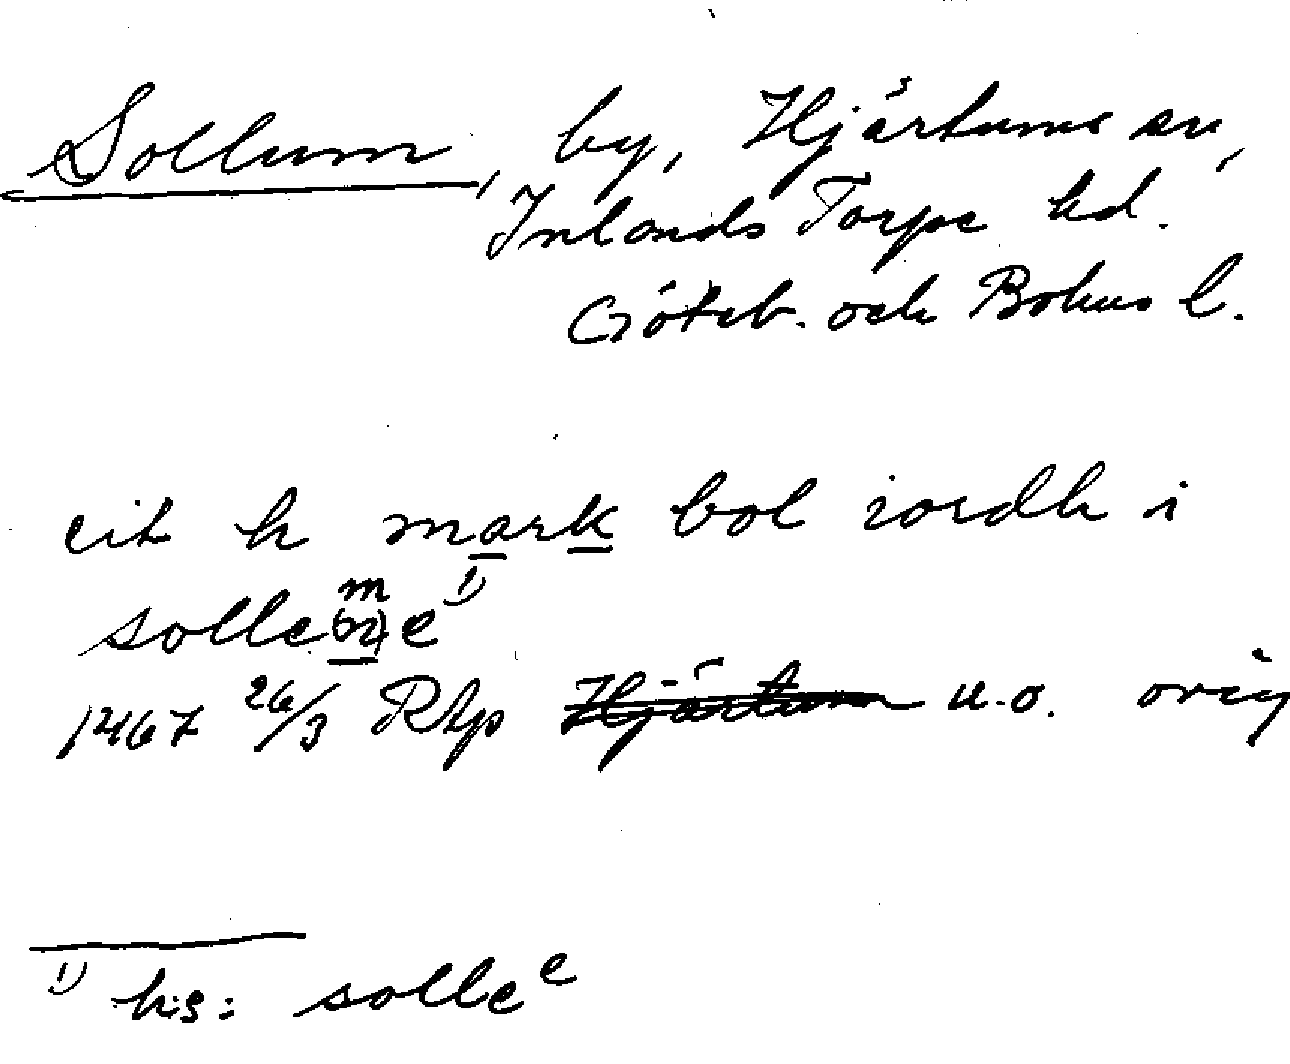 Sollum, by, Hjärtums sn,
Inlands Torpe hd.
Göteb. och Bohus l.
eit h mark bol iordh i
solle(m)e 1)
1467 26/3 Rhp Hjärtum u.o. orig
1) hs: solle e